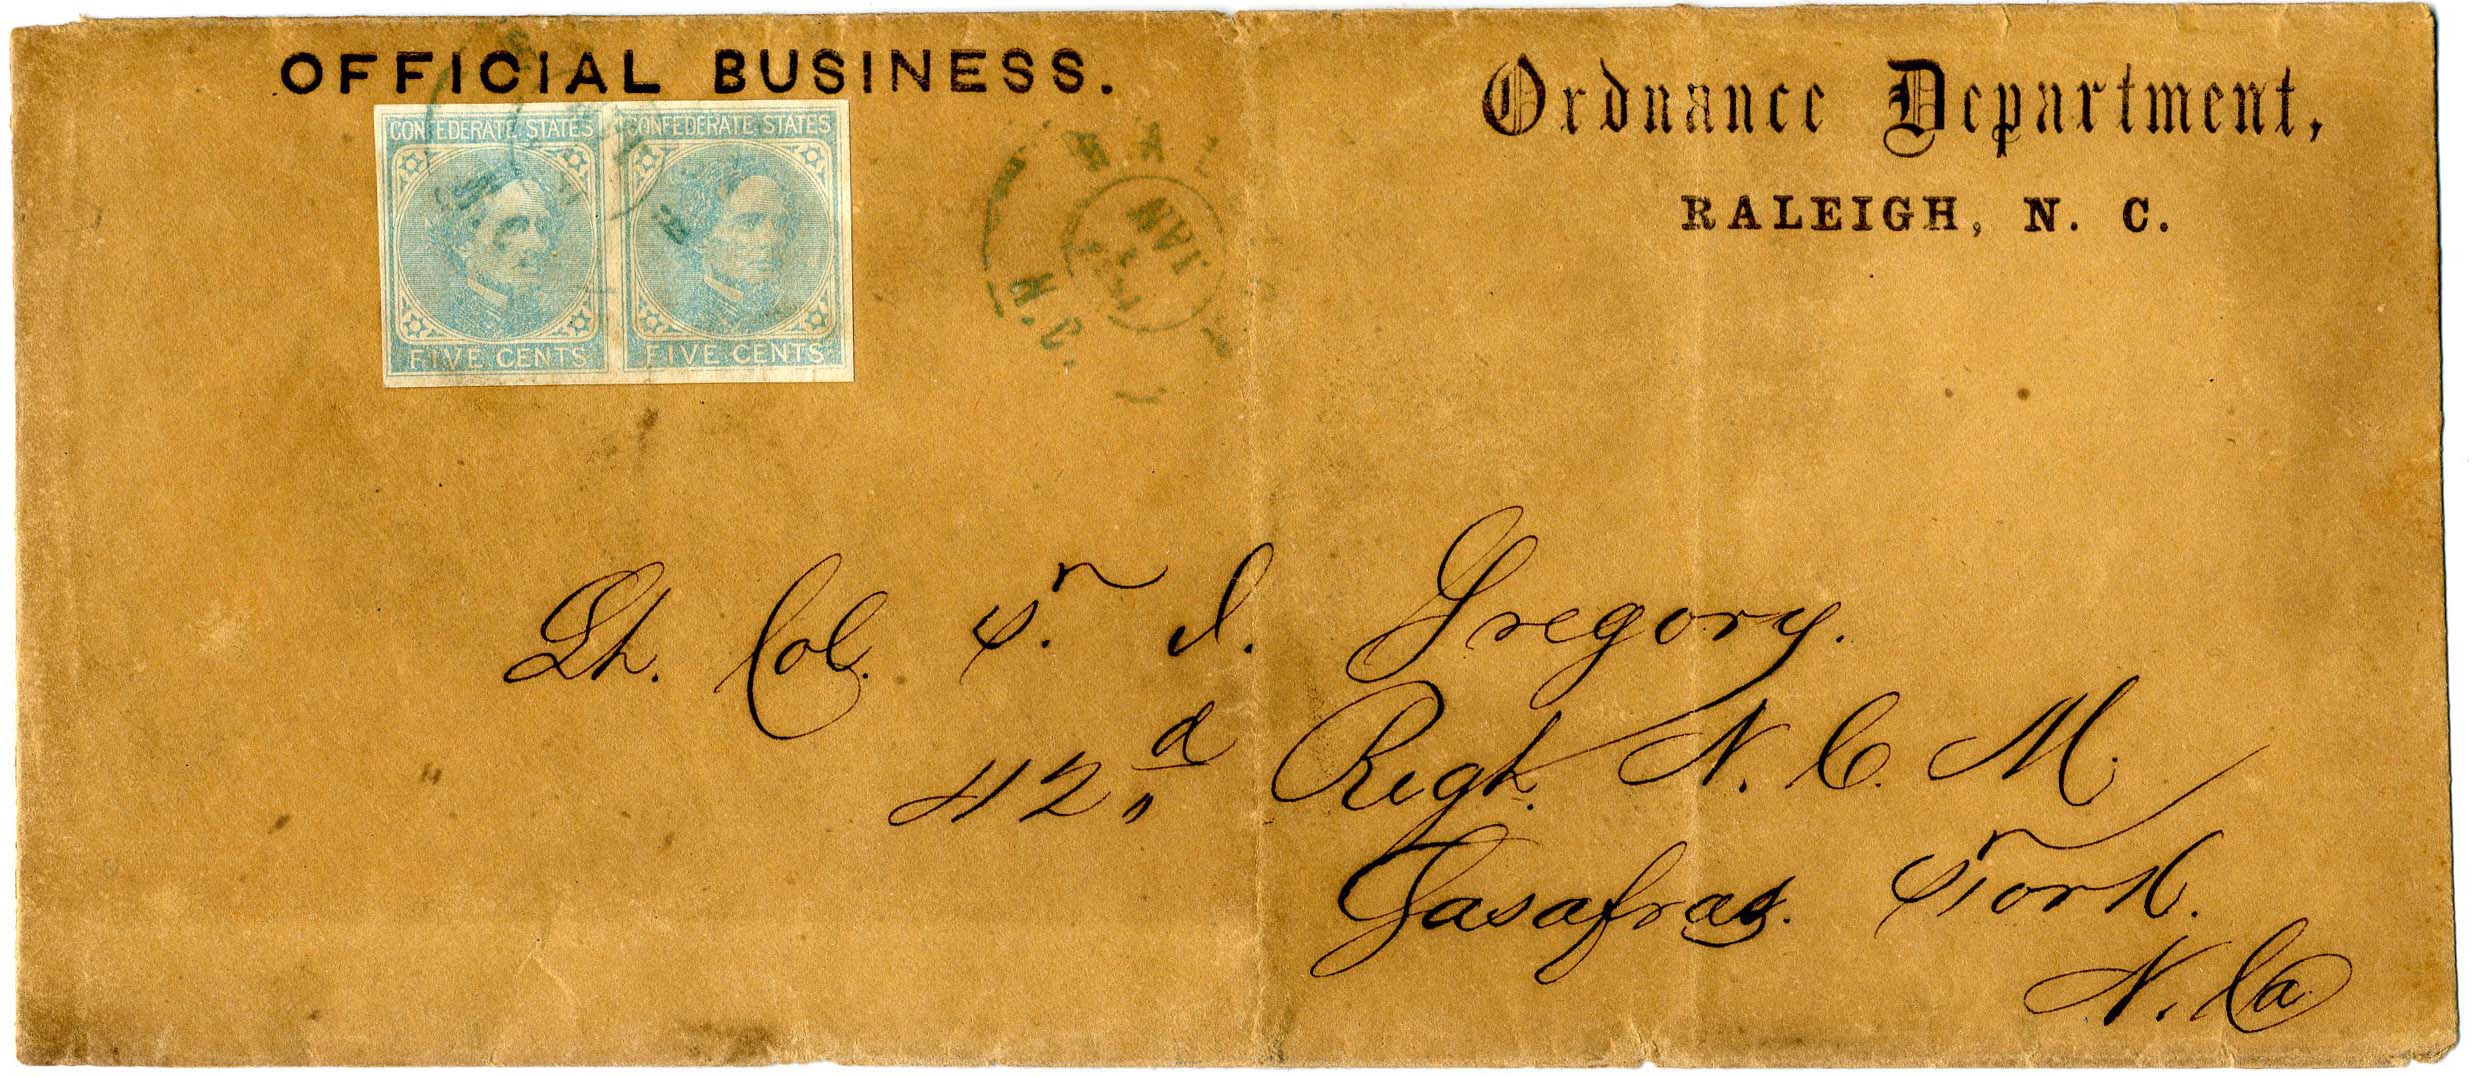 OFFICIAL BUSINESS.
Ordnance Department,
RALEIGH, N. C.
CONFEDERATE STATES
FIVE CENTS
CONFEDERATE STATES
FIVE CENTS
JAN
N.C.
Lt. Col. F. I. Gregory.
42,,d Regt. N. C. M.
Sasafras. Fork.
N. Ca